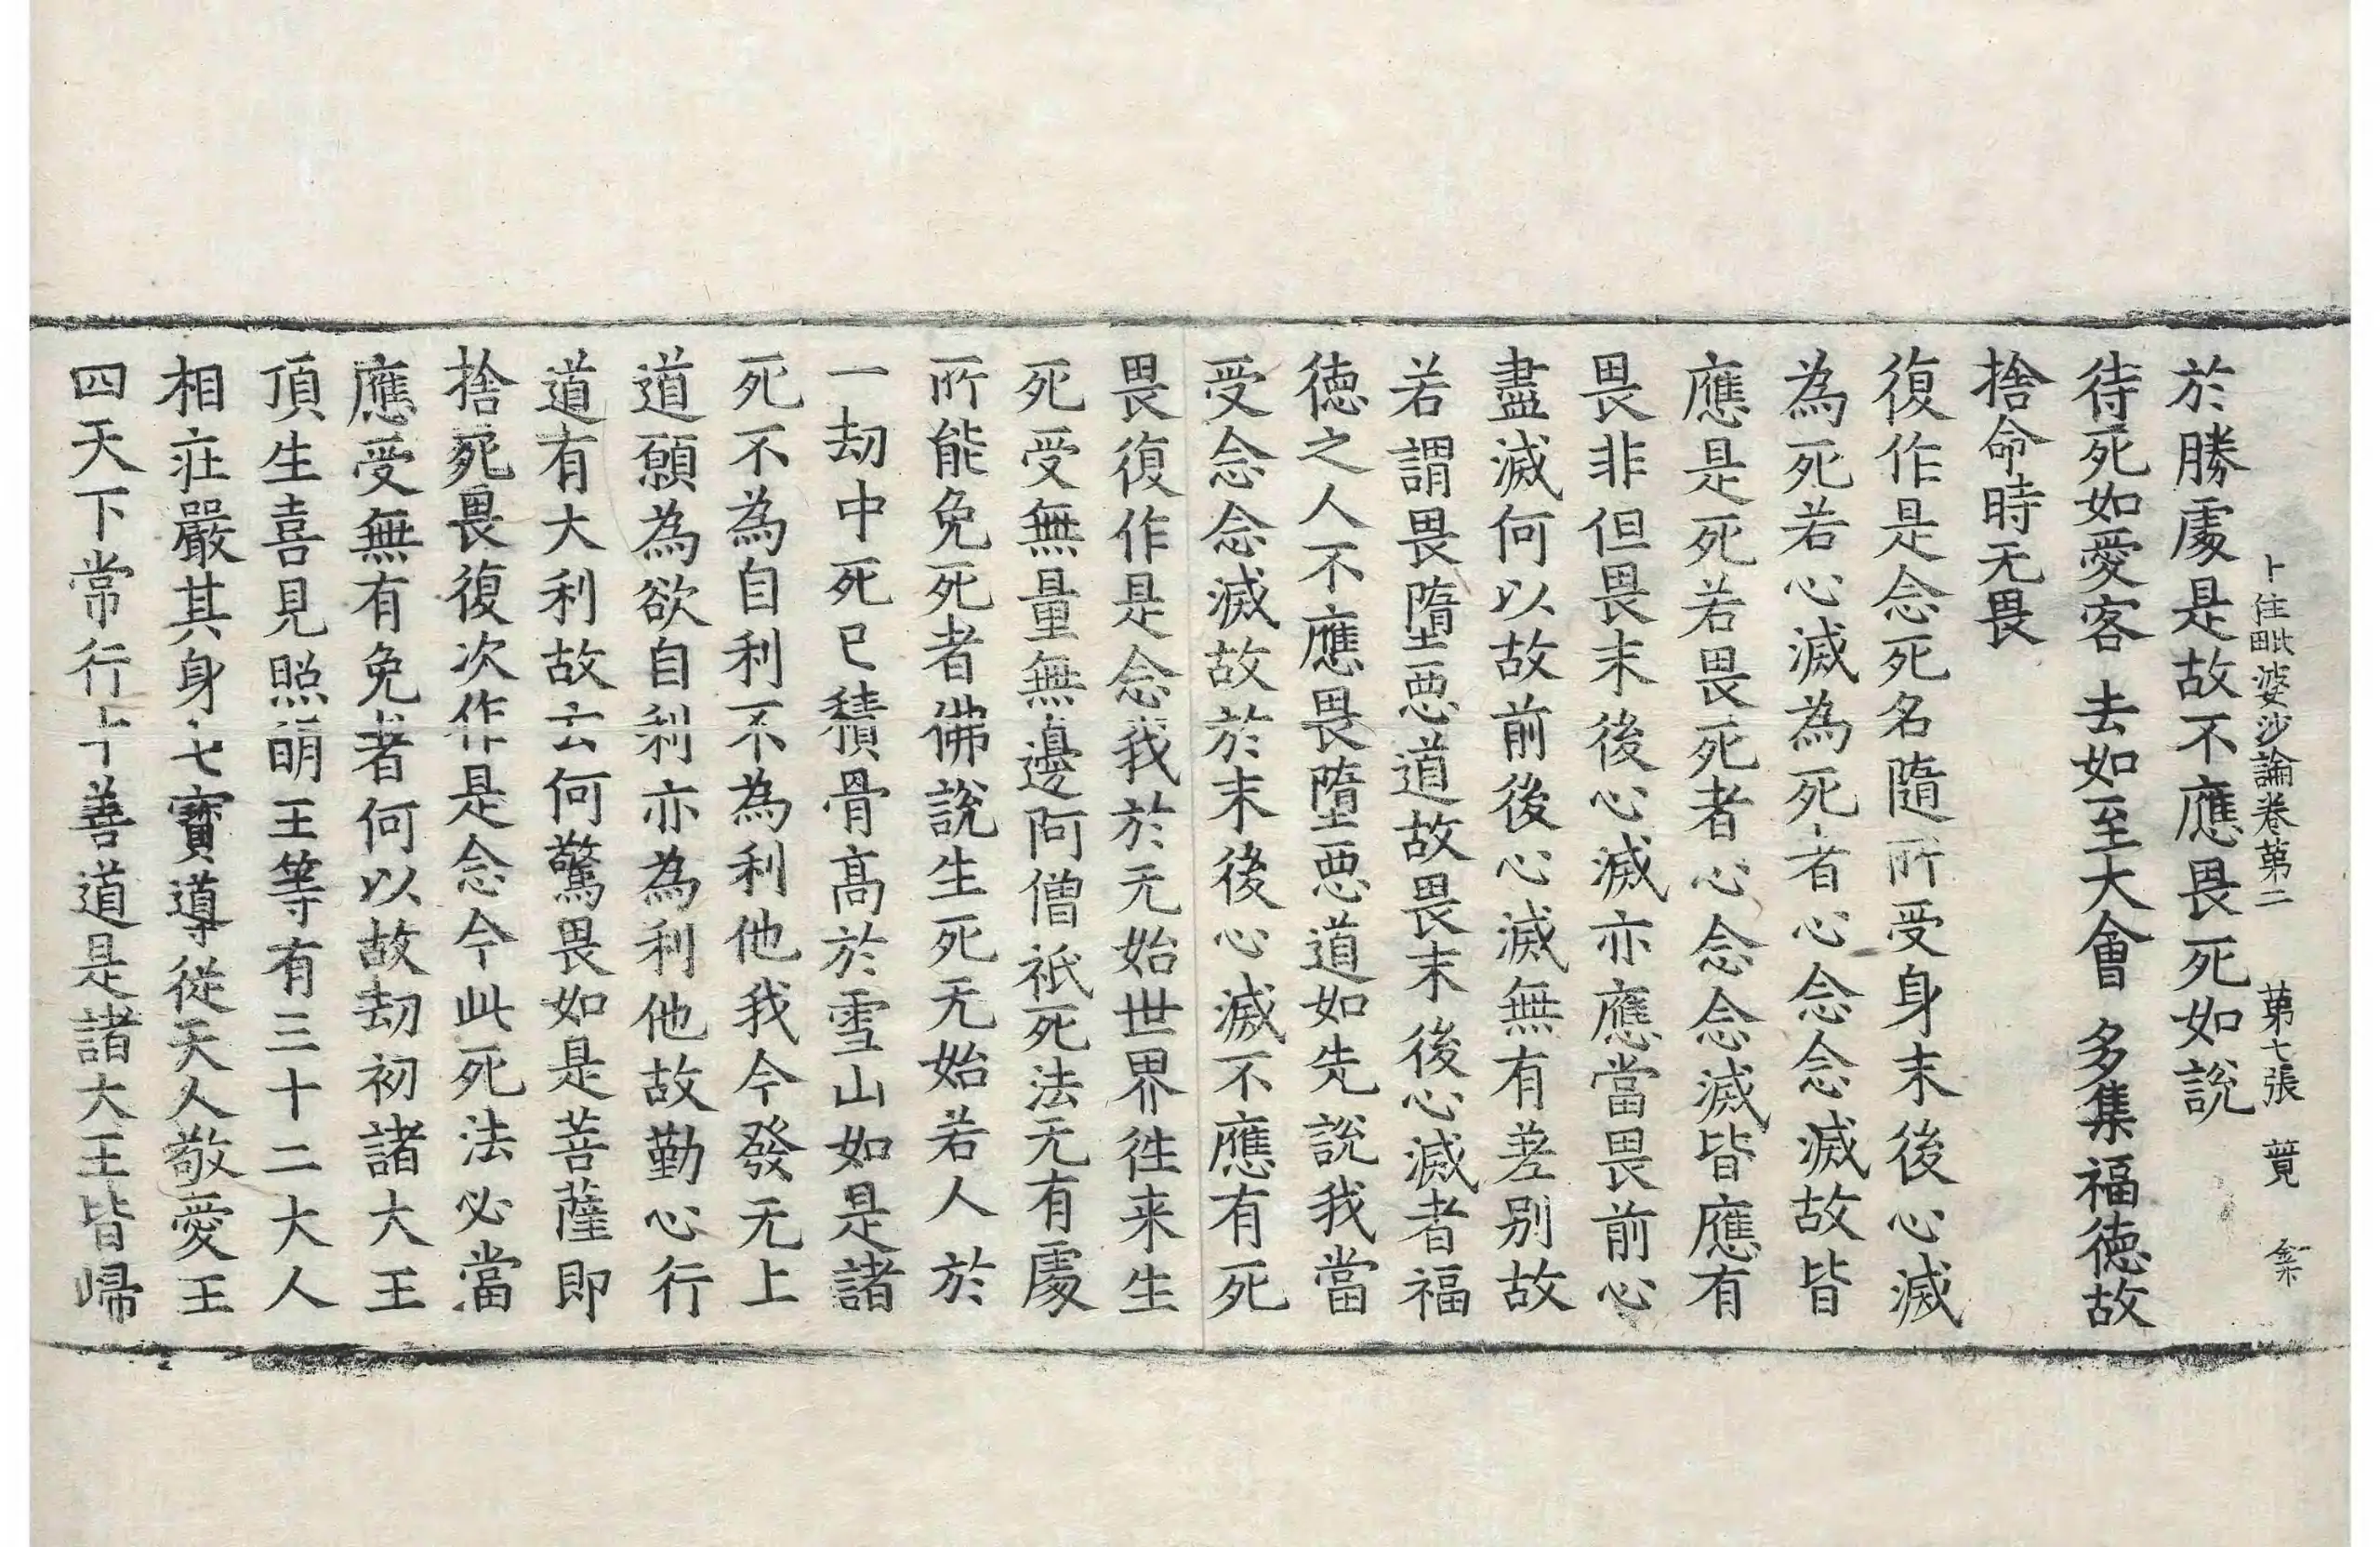 十住毗婆沙論卷第二　第七張　䕠
於勝處是故不應畏死如說
待死如愛客　去如至大會　多集福德故
捨命時无畏
復作是念死名隨所受身末後心滅
為死若心滅為死者心念念滅故皆
應是死若畏死者心念念滅皆應有
畏非但畏末後心滅亦應當畏前心
盡滅何以故前後心滅無有差別故
若謂畏墮惡道故畏末後心滅者福
德之人不應畏墮惡道如先說我當
受念念滅故於末後心滅不應有死
畏復作是念我於无始世界往来生
死受無量無邊阿僧祇死法无有處
所能免死者佛說生死无始若人於
一劫中死已積骨高於雪山如是諸
死不為自利不為利他我今發无上
道願為欲自利亦為利他故勤心行
道有大利故云何驚畏如是菩薩即
捨死畏復次作是念今此死法必當
應受無有免者何以故劫初諸大王
頂生喜見照明王等有三十二大人
相莊嚴其身七寶導從天人敬愛王
四天下常行十善道是諸大王皆歸